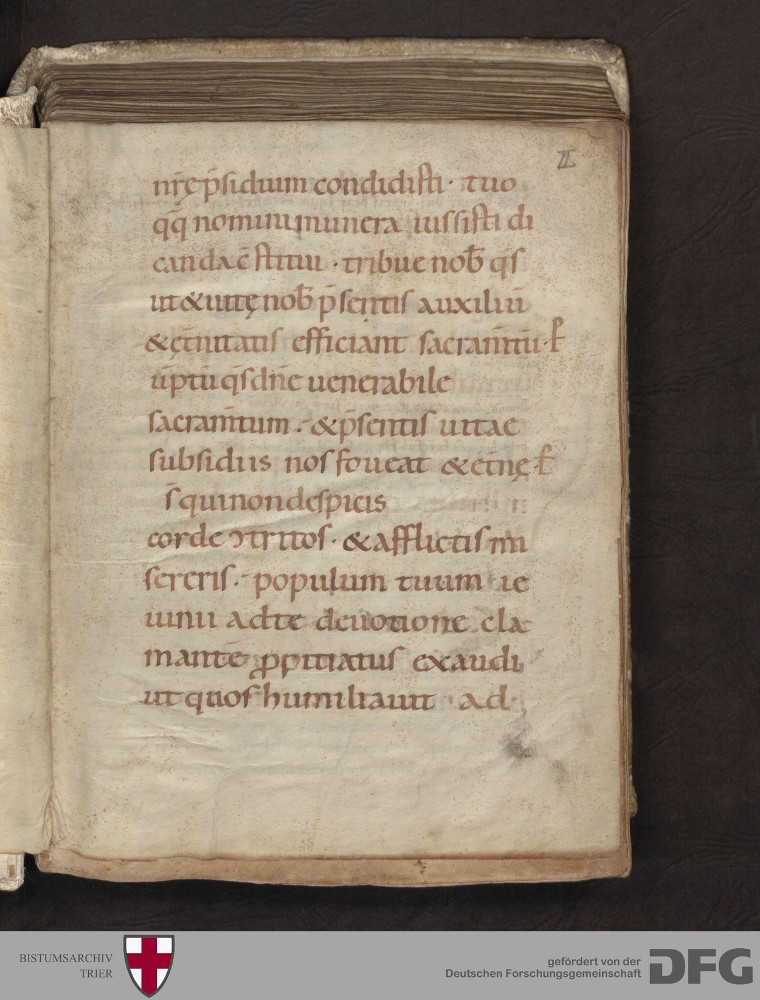 II
nr̄ę p̄sidium condidisti · tuo
qq̄ nomini munera iussisti di
canda c̄stitui · tribue nob̄ q̄s
ut & uitę nob̄ p̄sentis auxiliū
& ęt̄nitatis efficiant sacram̄tū · ꝑ
ūptū q̄s dn̄e uenerabile
sacram̄tum · & p̄sentis uitae
subsidiis nos foueat & et̄nę ꝑ
s̄ qui non despicis
corde ↄtritos · & afflictis mi
sereris · populum tuum ie
iunii ad te deuotione cla
mantē ꝓpitiatus exaudi
ut quos humiliauit ad
BISTUMSARCHIV
TRIER
gefördert von der
Deutschen Forschungsgemeinschaft
DFG